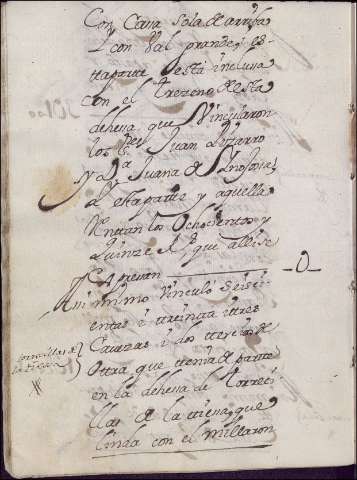 Con Casa Sola de arriba
Y con Val grande, y es
ta parte está inclusa
con el trezeno de esta
dehesa que Vincularon
los Sres. Juan Pizarro
y Da Juana de
de esta parte y aquella
entran los Ochocientos y
quinze Rs. que alli se
expresan — 0 —
Asi mismo Vinculo Seisci
entas i treinta i tres
Cavezas i dos tercios de
Ottra, que tenia de parte
en la dehesa de torreci
llas de la tiesa, que
linda con el millaron
torrecillas de
la tiesa